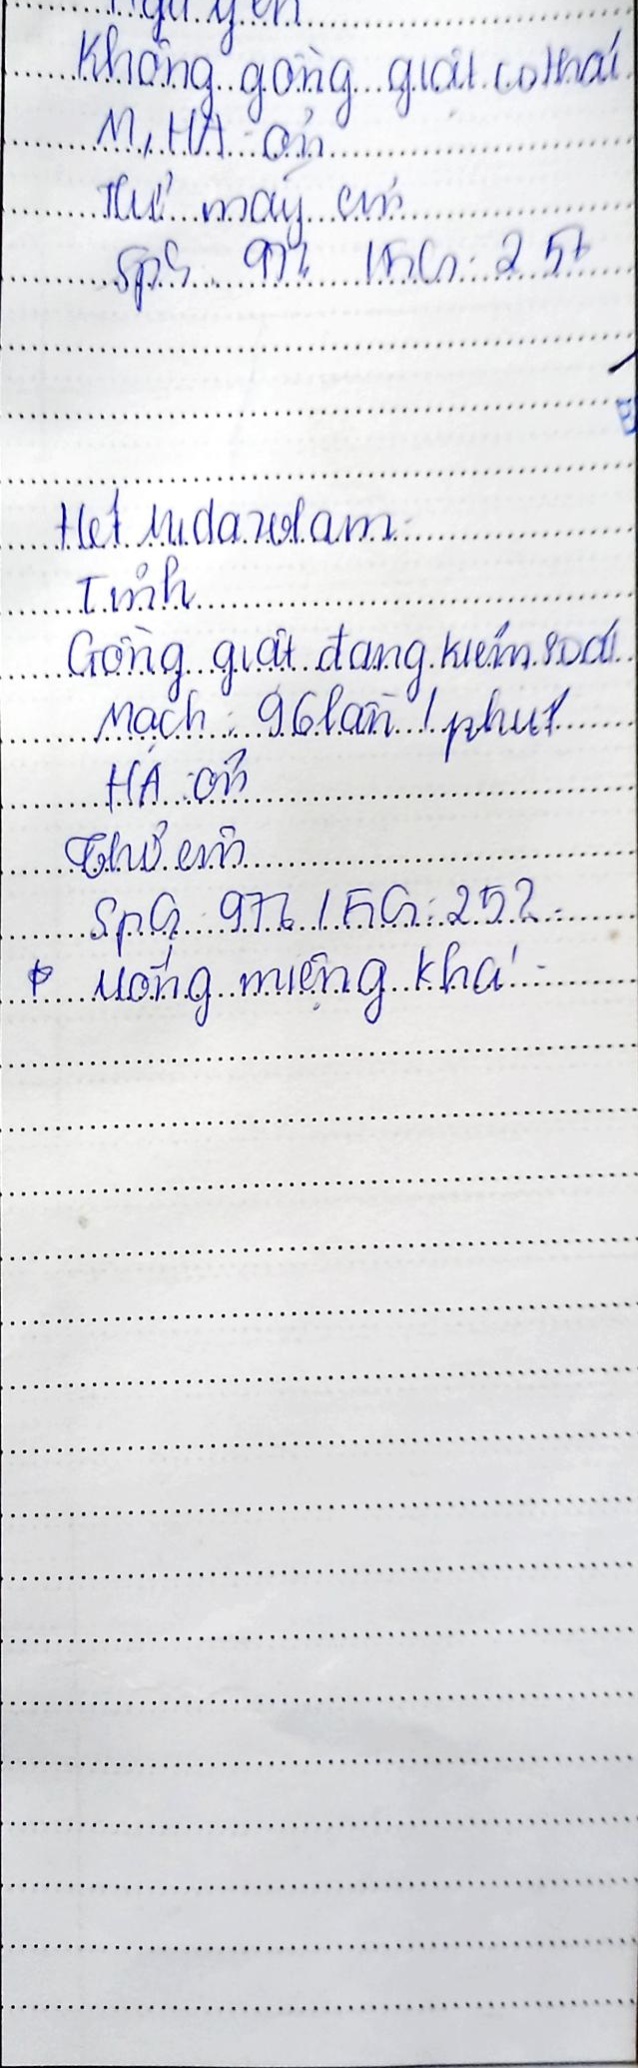 Ngủ yên
Không gồng giật co thắt
M, HA ổn
Thở máy êm
SpO2 97% FiO2: 25%
Hết Midazolam
Tỉnh
Gồng giật đang kiểm soát
Mạch: 96 lần / phút
HA: ổn
Thở êm
SpO2 97% / FiO2: 25%
Uống miệng khá